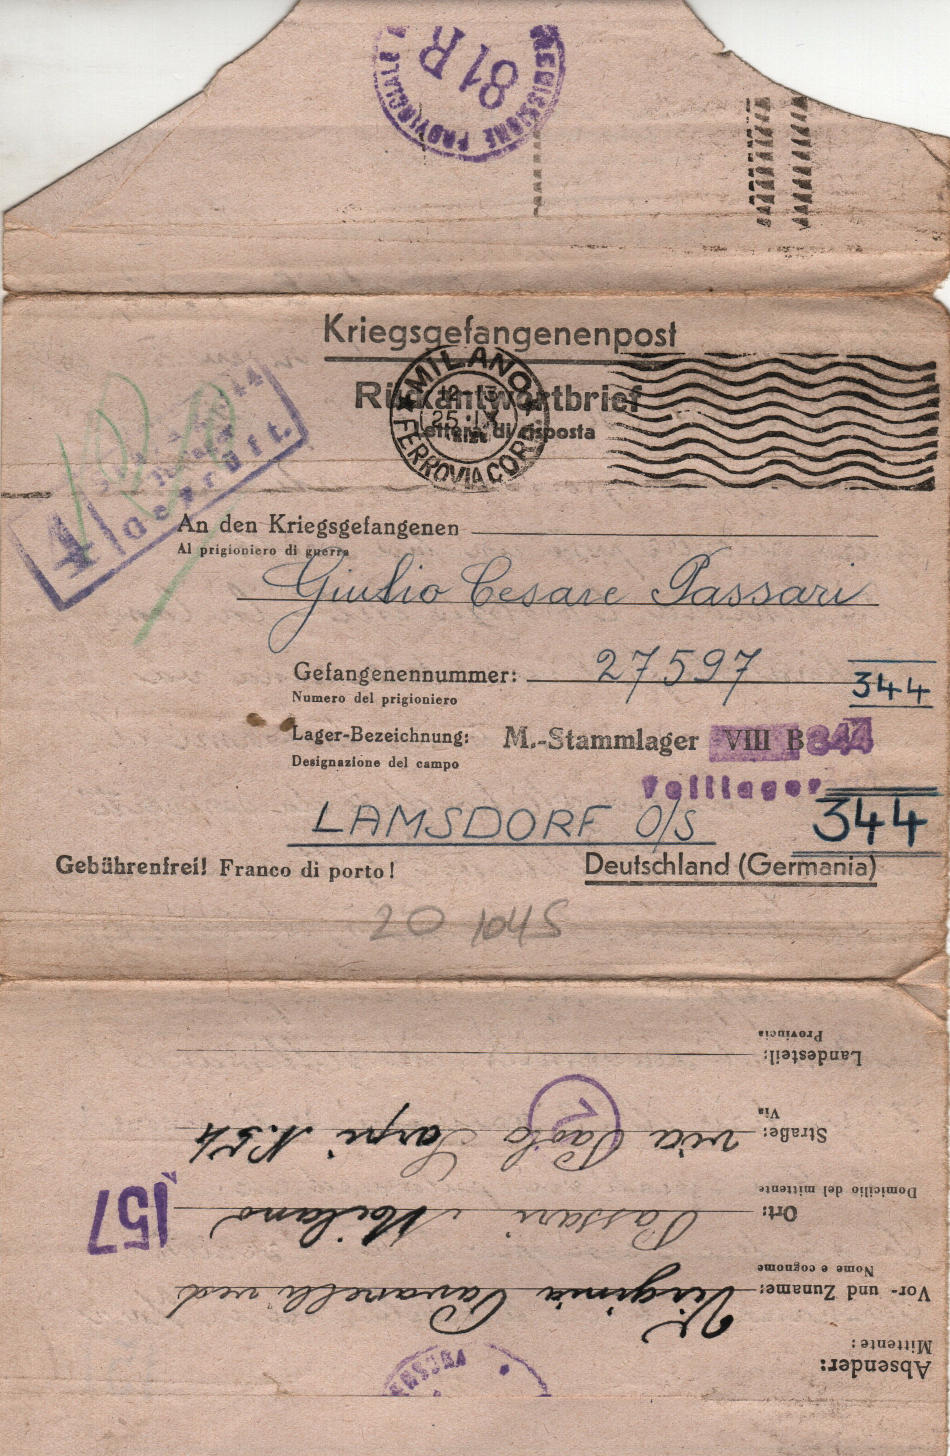 COMMISSIONE PROVINCIALE
81R
Kriegsgefangenenpost
Rückantwortbrief
Lettera di risposta
MILANO
FERROVIA CORR
4 Geprüft.
An den Kriegsgefangenen
Al prigioniero di guerra
Giulio Cesare Passari
Gefangenennummer: 27597
Numero del prigioniero
344
Lager-Bezeichnung: M.-Stammlager VIII B 344
Designazione del campo
Teillager
LAMSDORF O/S 344
Gebührenfrei! Franco di porto! Deutschland (Germania)
20 1045
Absender:
Mittente:
Vor- und Zuname: Virginia Pavanelli ved
Nome e cognome
Ort: Passari Milano
Domicilio del mittente
157
Straße: via Paolo Sarpi N. 54
Via
2
Landesteil:
Provincia